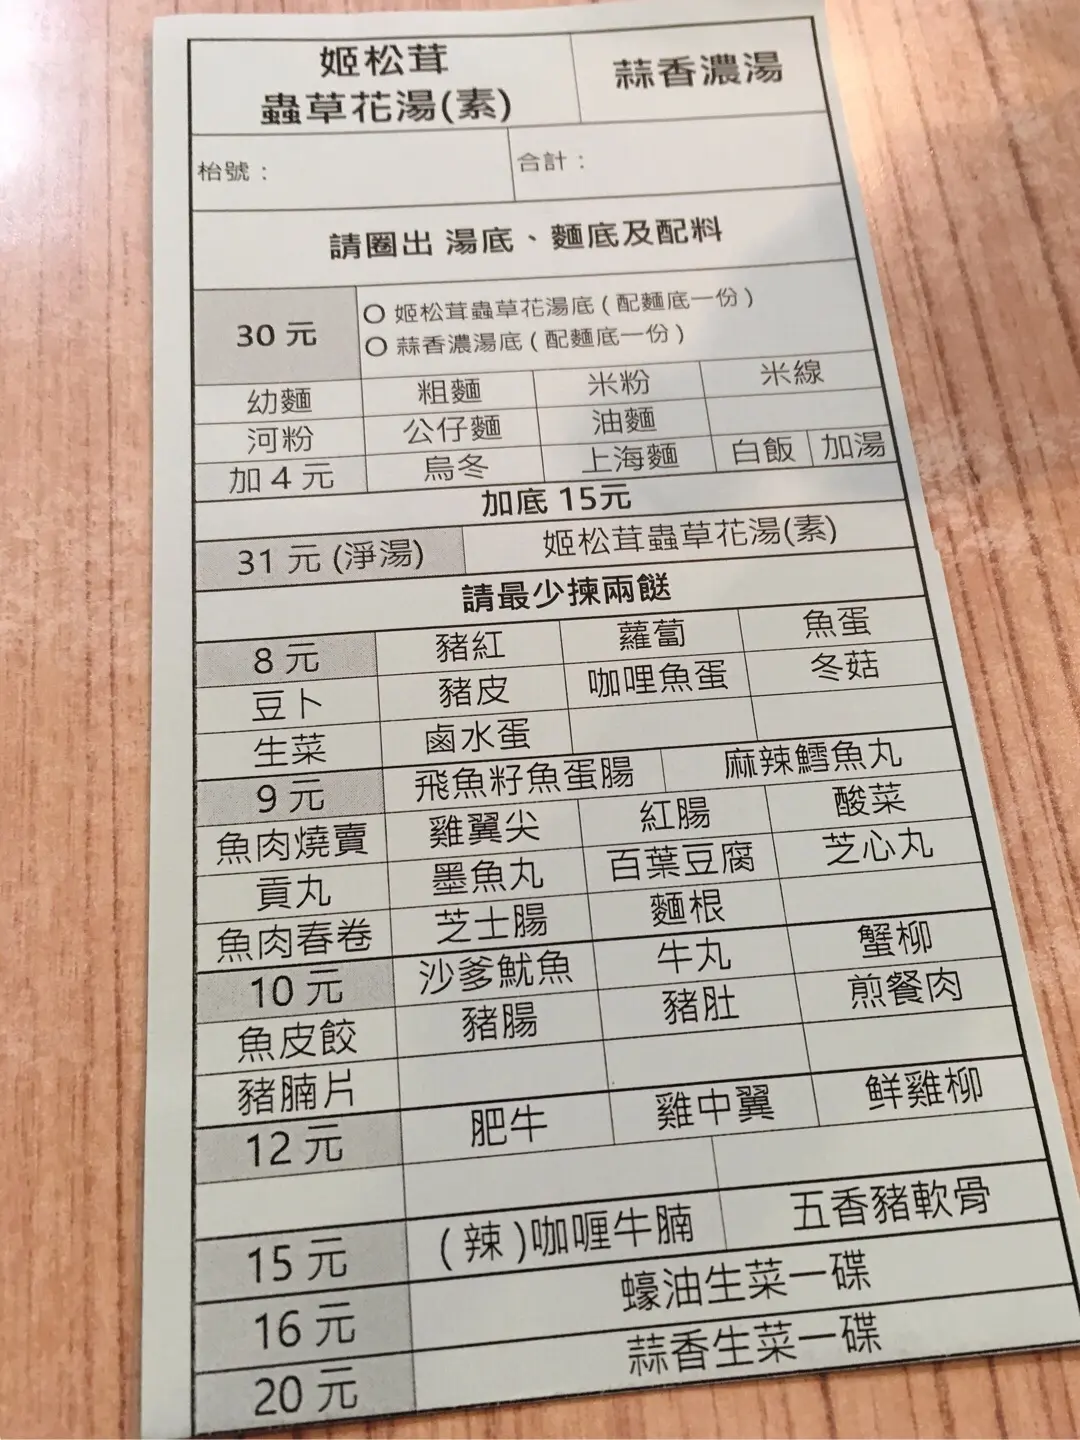 姬松茸
蟲草花湯(素)
蒜香濃湯
枱號：
合計：
請圈出 湯底、麵底及配料
30 元
姬松茸蟲草花湯底 ( 配麵底一份 )
蒜香濃湯底 ( 配麵底一份 )
幼麵 粗麵 米粉 米線
河粉 公仔麵 油麵
加 4 元 烏冬 上海麵 白飯 加湯
加底 15元
31 元 (淨湯) 姬松茸蟲草花湯(素)
請最少揀兩餸
8 元 豬紅 蘿蔔 魚蛋
豆卜 豬皮 咖哩魚蛋 冬菇
生菜 鹵水蛋
9 元 飛魚籽魚蛋腸 麻辣鱈魚丸
魚肉燒賣 雞翼尖 紅腸 酸菜
貢丸 墨魚丸 百葉豆腐 芝心丸
魚肉春卷 芝士腸 麵根
10 元 沙爹魷魚 牛丸 蟹柳
魚皮餃 豬腸 豬肚 煎餐肉
豬腩片
12 元 肥牛 雞中翼 鮮雞柳
15 元 ( 辣 )咖喱牛腩 五香豬軟骨
16 元 蠔油生菜一碟
20 元 蒜香生菜一碟